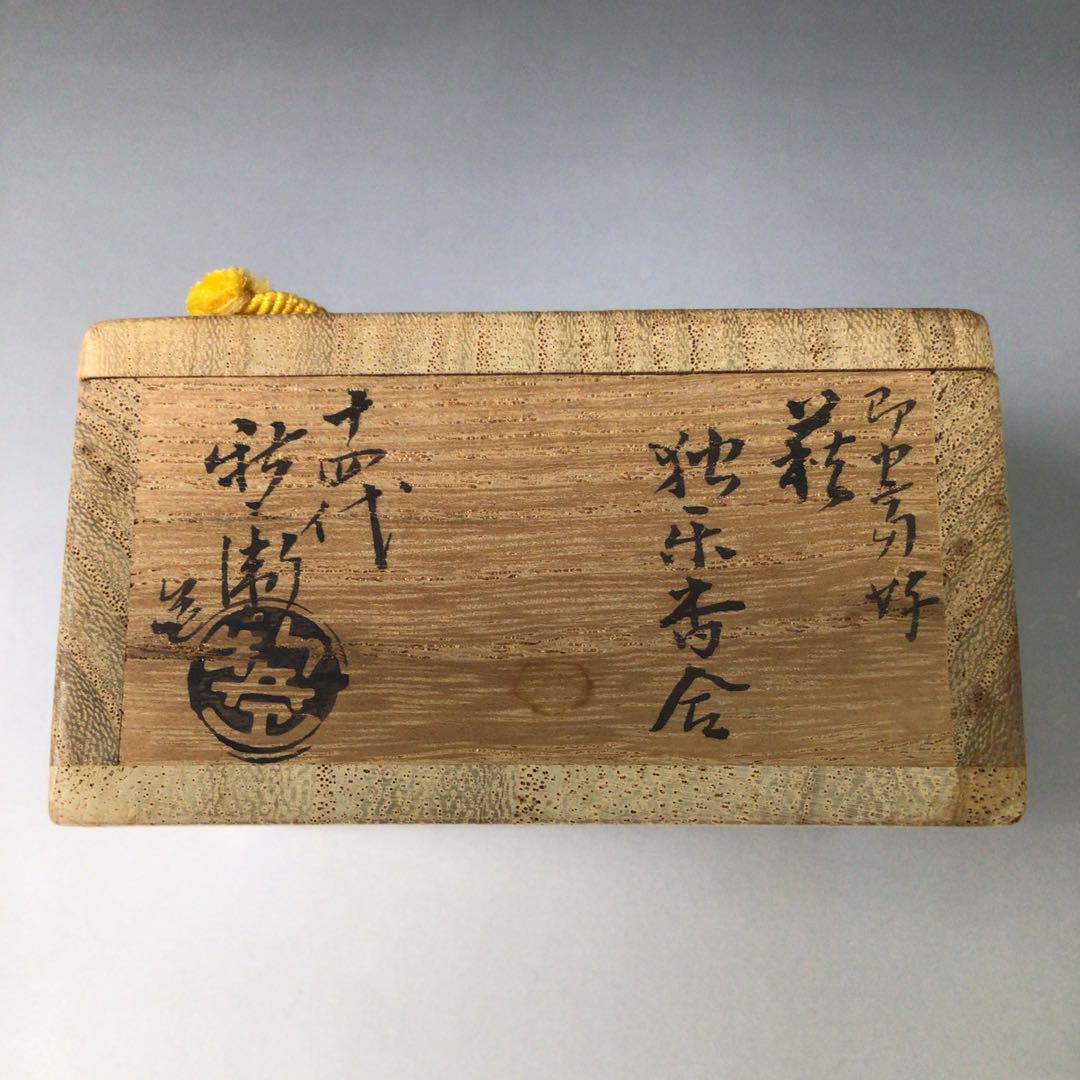 即中斎好
萩
独楽香合
十四代
新兵衛
造